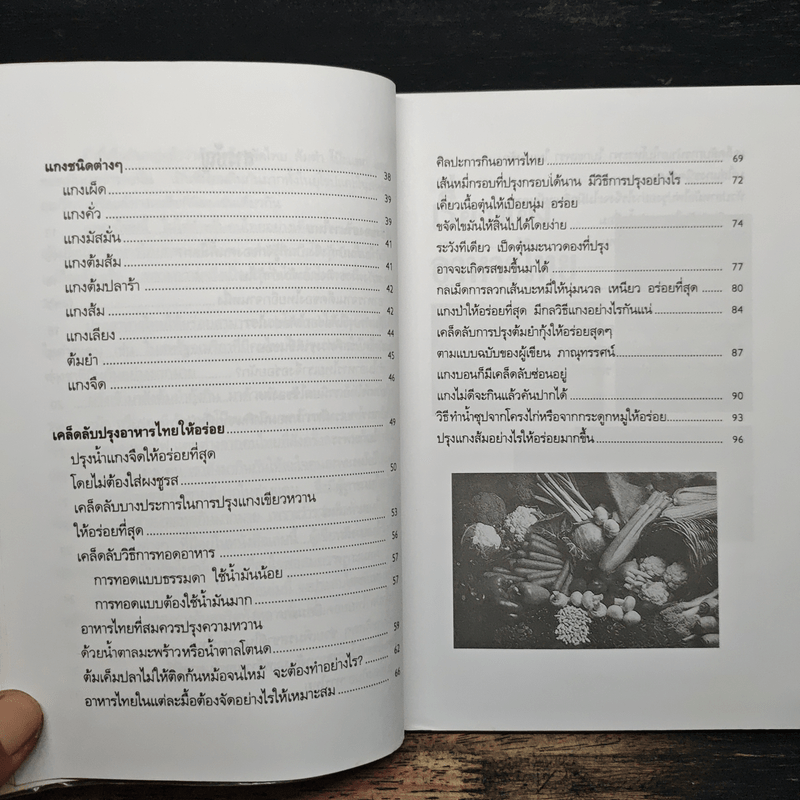 แกงชนิดต่างๆ 38
แกงเผ็ด 39
แกงคั่ว 39
แกงมัสมั่น 41
แกงต้มส้ม 41
แกงต้มปลาร้า 42
แกงส้ม 42
แกงเลียง 44
ต้มยำ 45
แกงจืด 46
เคล็ดลับปรุงอาหารไทยให้อร่อย 49
ปรุงน้ำแกงจืดให้อร่อยที่สุด
โดยไม่ต้องใส่ผงชูรส 50
เคล็ดลับบางประการในการปรุงแกงเขียวหวาน
ให้อร่อยที่สุด 53
เคล็ดลับวิธีการทอดอาหาร 56
การทอดแบบธรรมดา ใช้น้ำมันน้อย 57
การทอดแบบต้องใช้น้ำมันมาก 57
อาหารไทยที่สมควรปรุงความหวาน
ด้วยน้ำตาลมะพร้าวหรือน้ำตาลโตนด 59
ต้มเค็มปลาไม่ให้ติดก้นหม้อจนไหม้ จะต้องทำอย่างไร? 62
อาหารไทยในแต่ละมื้อต้องจัดอย่างไรให้เหมาะสม 66
ศิลปะการกินอาหารไทย 69
เส้นหมี่กรอบที่ปรุงกรอบได้นาน มีวิธีการปรุงอย่างไร 72
เคี่ยวเนื้อตุ๋นให้เปื่อยนุ่ม อร่อย
ขจัดไขมันให้สิ้นไปได้โดยง่าย 74
ระวังทีเดียว เป็ดตุ๋นมะนาวดองที่ปรุง
อาจจะเกิดรสขมขึ้นมาได้ 77
กลเม็ดการลวกเส้นบะหมี่ให้นุ่มนวล เหนียว อร่อยที่สุด 80
แกงป่าให้อร่อยที่สุด มีกลวิธีแกงอย่างไรกันแน่ 84
เคล็ดลับการปรุงต้มยำกุ้งให้อร่อยสุดๆ
ตามแบบฉบับของผู้เขียน ภาณุทรรศน์ 87
แกงบอนก็มีเคล็ดลับซ่อนอยู่
แกงไม่ดีจะกินแล้วคันปากได้ 90
วิธีทำน้ำซุปจากโครงไก่หรือจากกระดูกหมูให้อร่อย 93
ปรุงแกงส้มอย่างไรให้อร่อยมากขึ้น 96